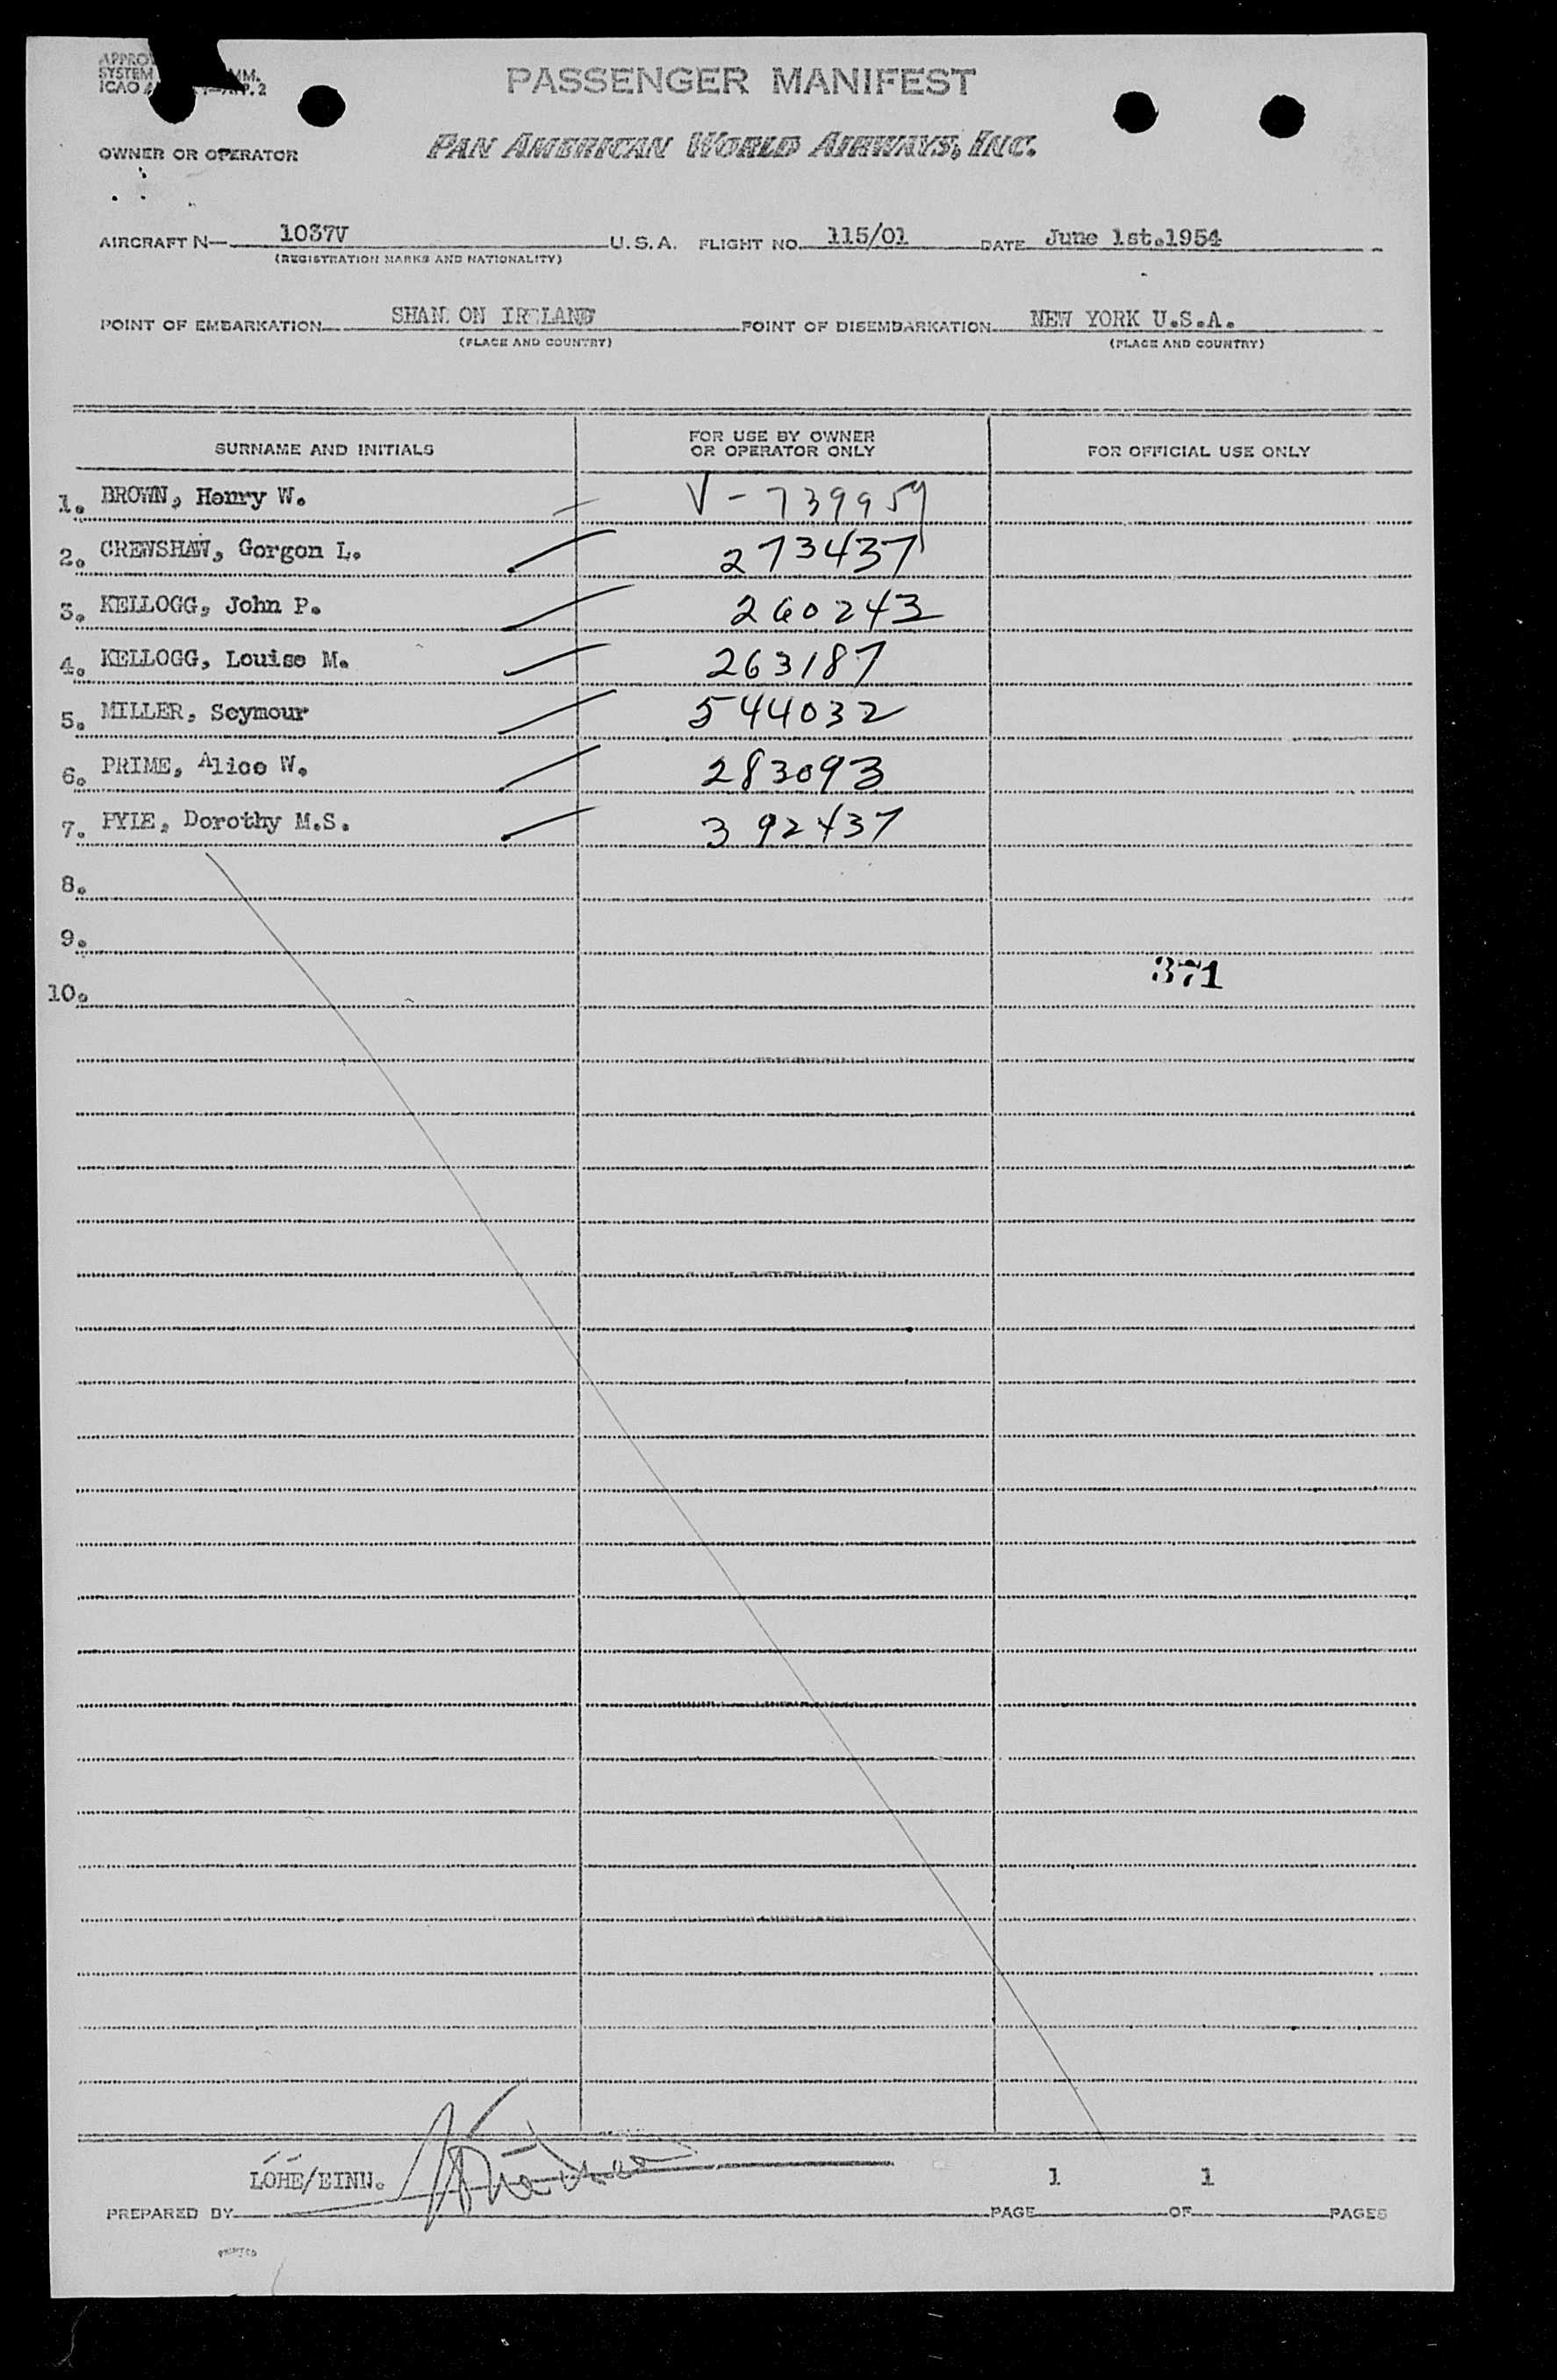 PASSENGER MANIFEST
OWNER OR OPERATOR PAN AMERICAN WORLD AIRWAYS, INC.
AIRCRAFT N— 1037V U.S.A. FLIGHT NO. 115/01 DATE June 1st.1954
(REGISTRATION MARKS AND NATIONALITY)
POINT OF EMBARKATION SHAN ON IR LAND POINT OF DISEMBARKATION NEW YORK U.S.A.
(PLACE AND COUNTRY) (PLACE AND COUNTRY)
SURNAME AND INITIALS FOR USE BY OWNER OR OPERATOR ONLY FOR OFFICIAL USE ONLY
1. BROWN, Henry W. V-739959
2. CREWSHAW, Gorgon L. 273437
3. KELLOGG, John P. 260243
4. KELLOGG, Louise M. 263187
5. MILLER, Seymour 544032
6. PRIME, Alice W. 283093
7. PYLE, Dorothy M.S. 392437
8.
9.
371
10.
1 1
PREPARED BY PAGE OF PAGES
PRINTED